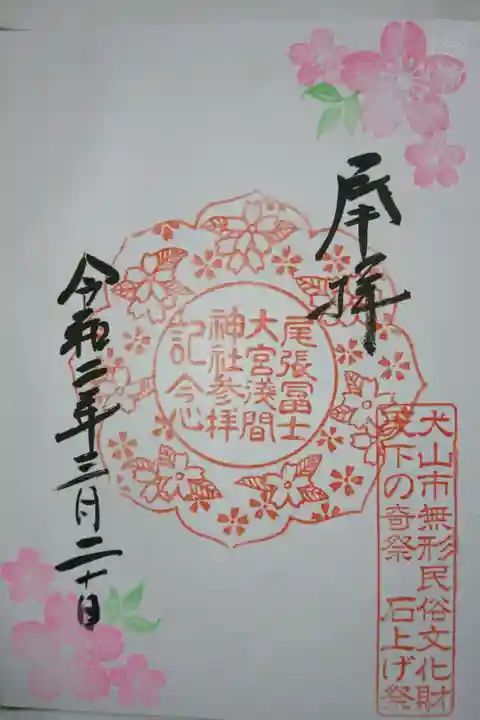 奉拝
犬山市無形民俗文化財
天下の奇祭 石上げ祭
尾張冨士
大宮浅間
神社参拝
記念
令和二年三月二十日